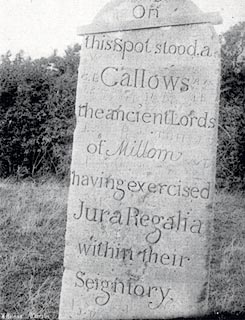 On
this Spot stood a
Gallows
the ancient Lords
of Millom
having exercised
Jura Regalia
within their
Seigniory.